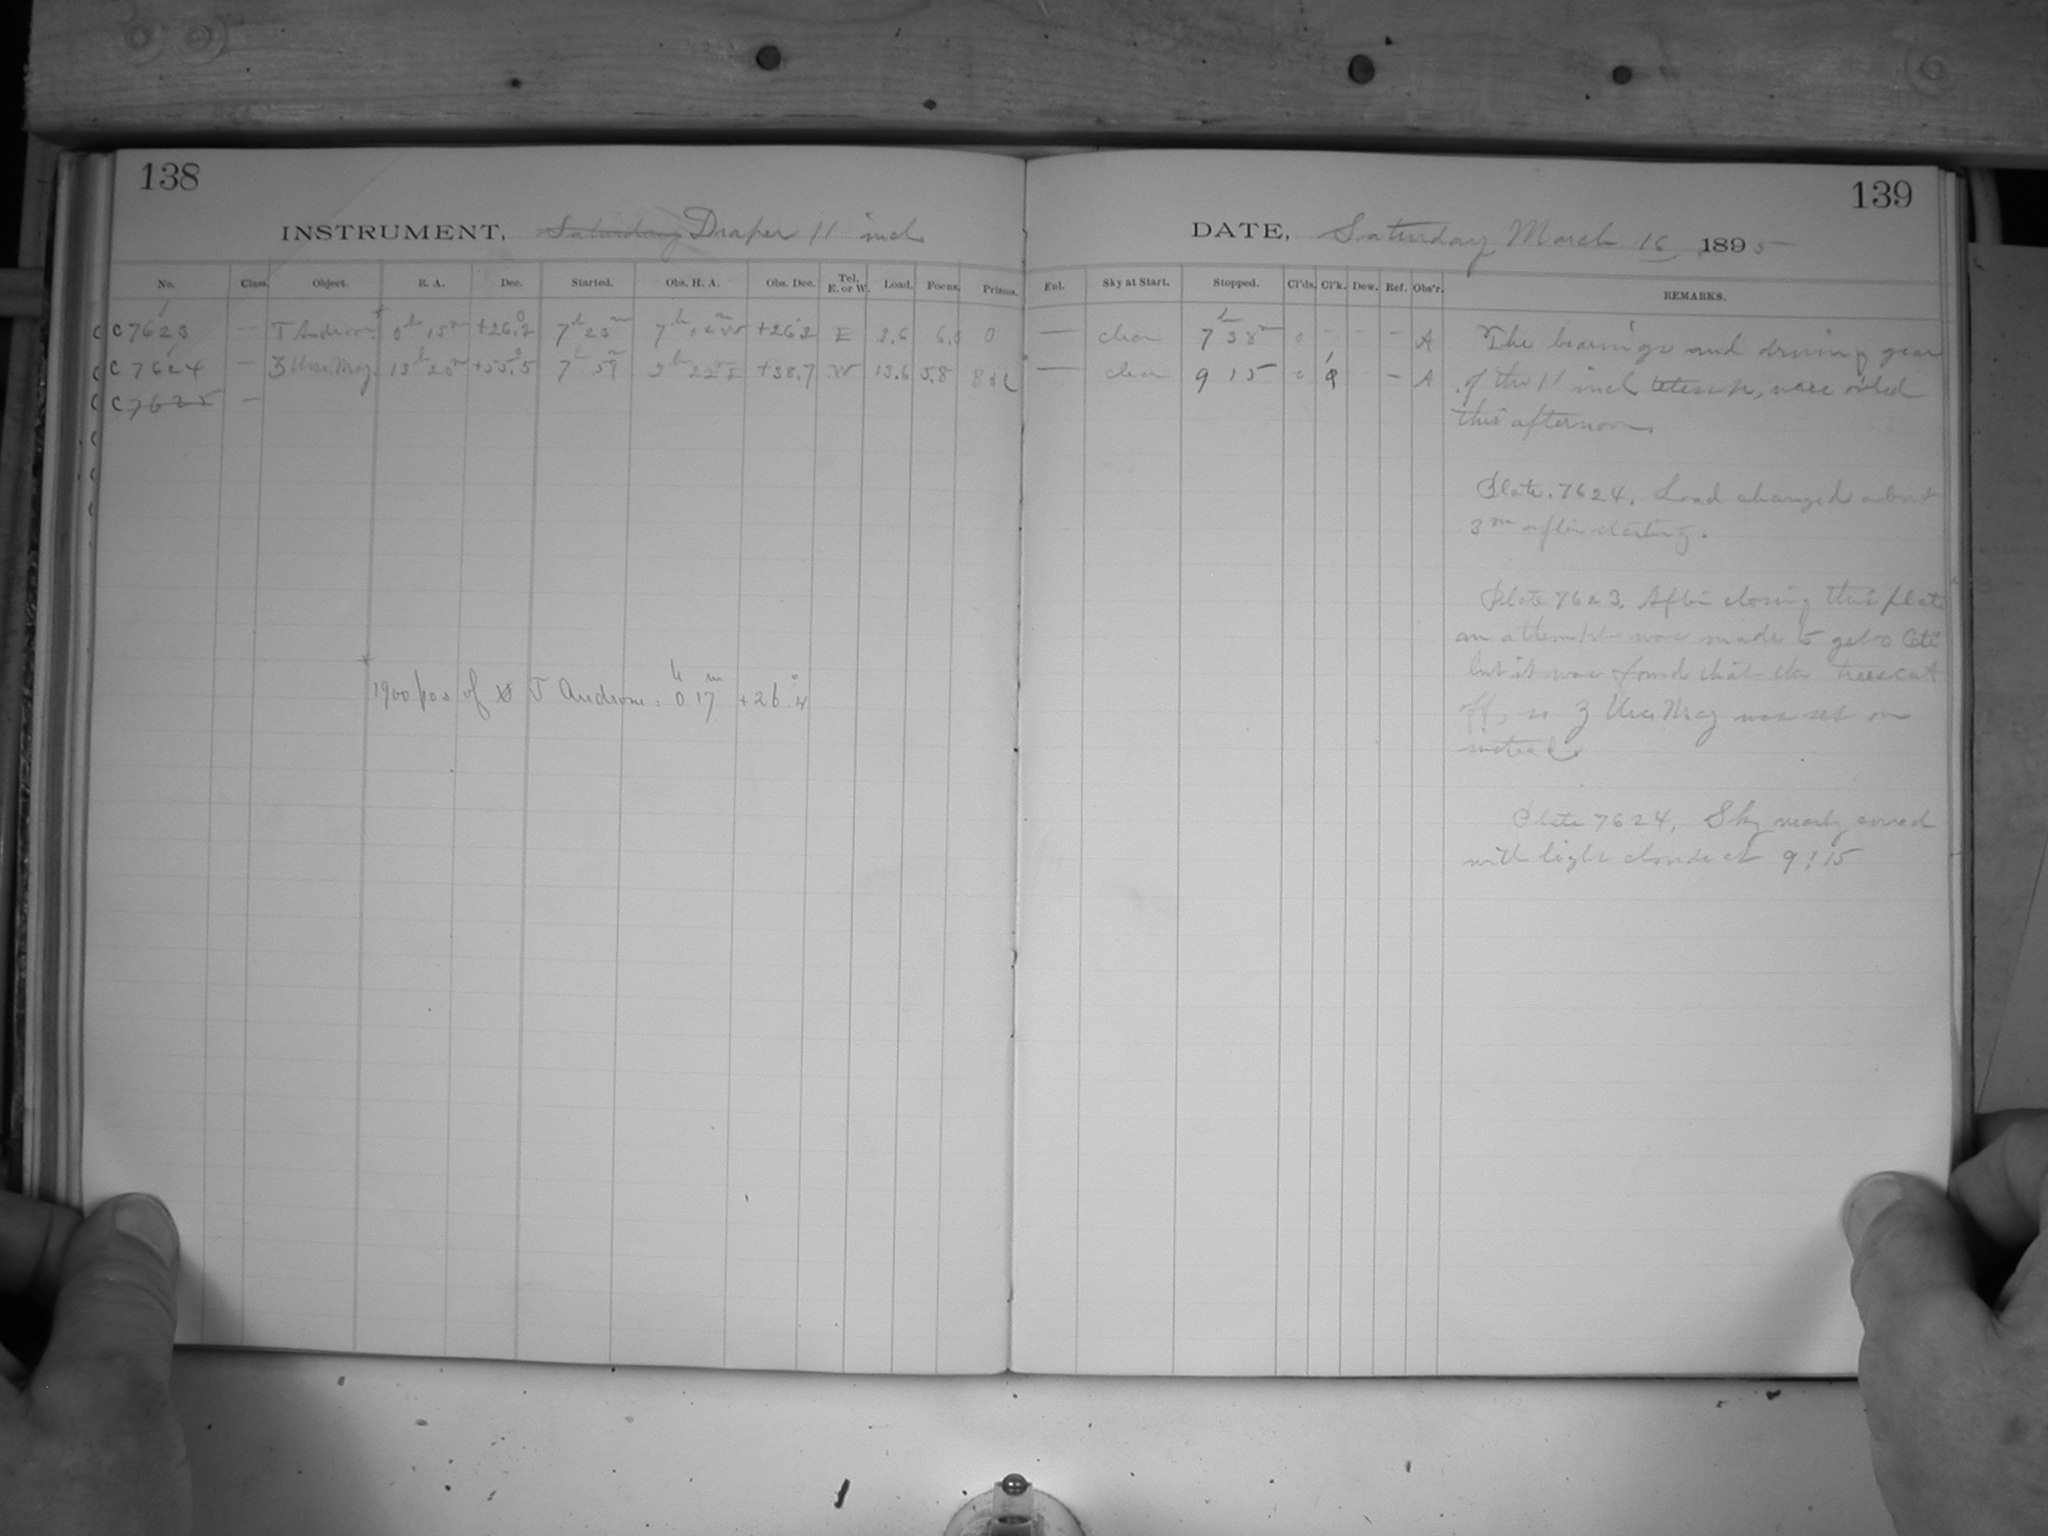 138
INSTRUMENT, Saturday Draper 11 inch
No. Class. Object. R. A. Dec. Started. Obs. H. A. Obs. Dec. Tel. E. or W. Load. Focus. Prisms.
C 7623 — T Androm. 0h 15m +26°.2 7h 23m 7h 02m W +26.2 E 3.6 0
C 7624 — ζ Urs. Maj. 13h 20m +55°.5 7h 59m 5h 22m E +38.7 W 13.6 5.8
C 7625 —
1900 pos of T Androm: 0h 17m +26°.4
139
DATE, Saturday March 16 1895
Enl. Sky at Start. Stopped. Cl'ds. Cl'k. Dew. Ref. Obs'r. REMARKS.
— clear 7h 38m 0 - - - A
— clear 9 15 - A
The bearings and driving gear
of the 11 inch telescope, were oiled
this afternoon.
Plate 7624. Load changed about
3m after starting.
Plate 7623. After closing this plate
an attempt was made to get o Ceti
but it was found that the trees cut
off, so ζ Urs Maj was set on
instead.
Plate 7624, Sky nearly covered
with light clouds at 9:15